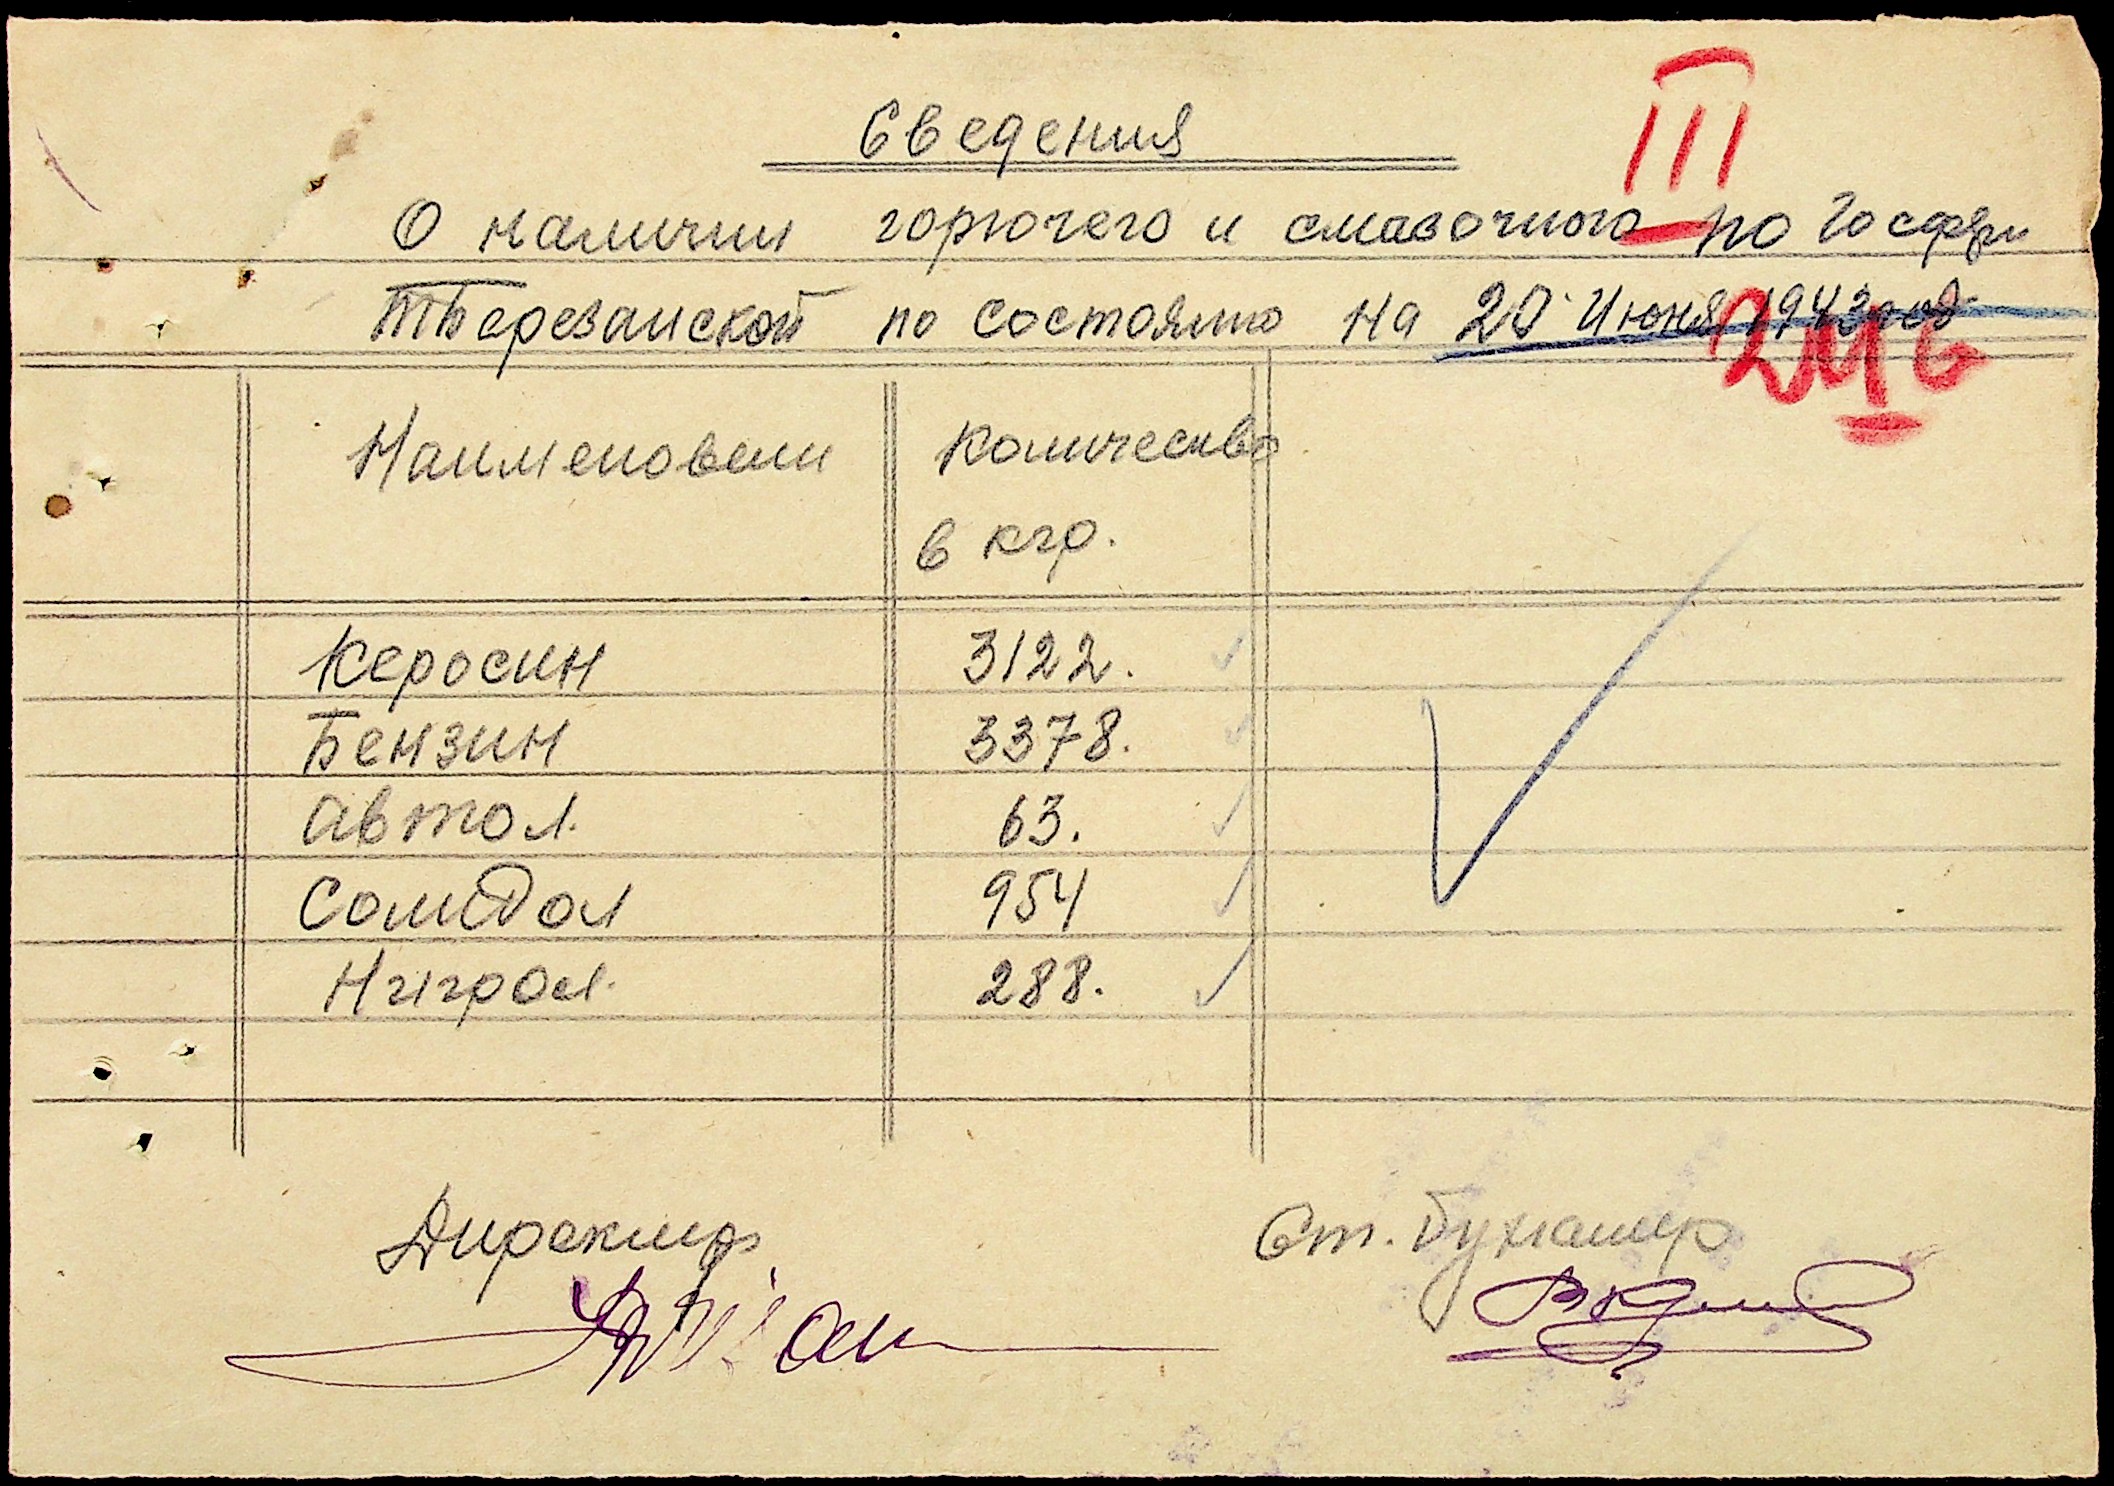 Сведения
III
О наличии горючего и смазочного по Госфер
Березанской по состоянию на 20 Июня 1943 год
Наименовени Количество
в кгр.
Керосин 3122.
Бензин 3378.
Автол. 63.
Солидол 954
Нигрол. 288.
Директор Ст. Бухгалтер